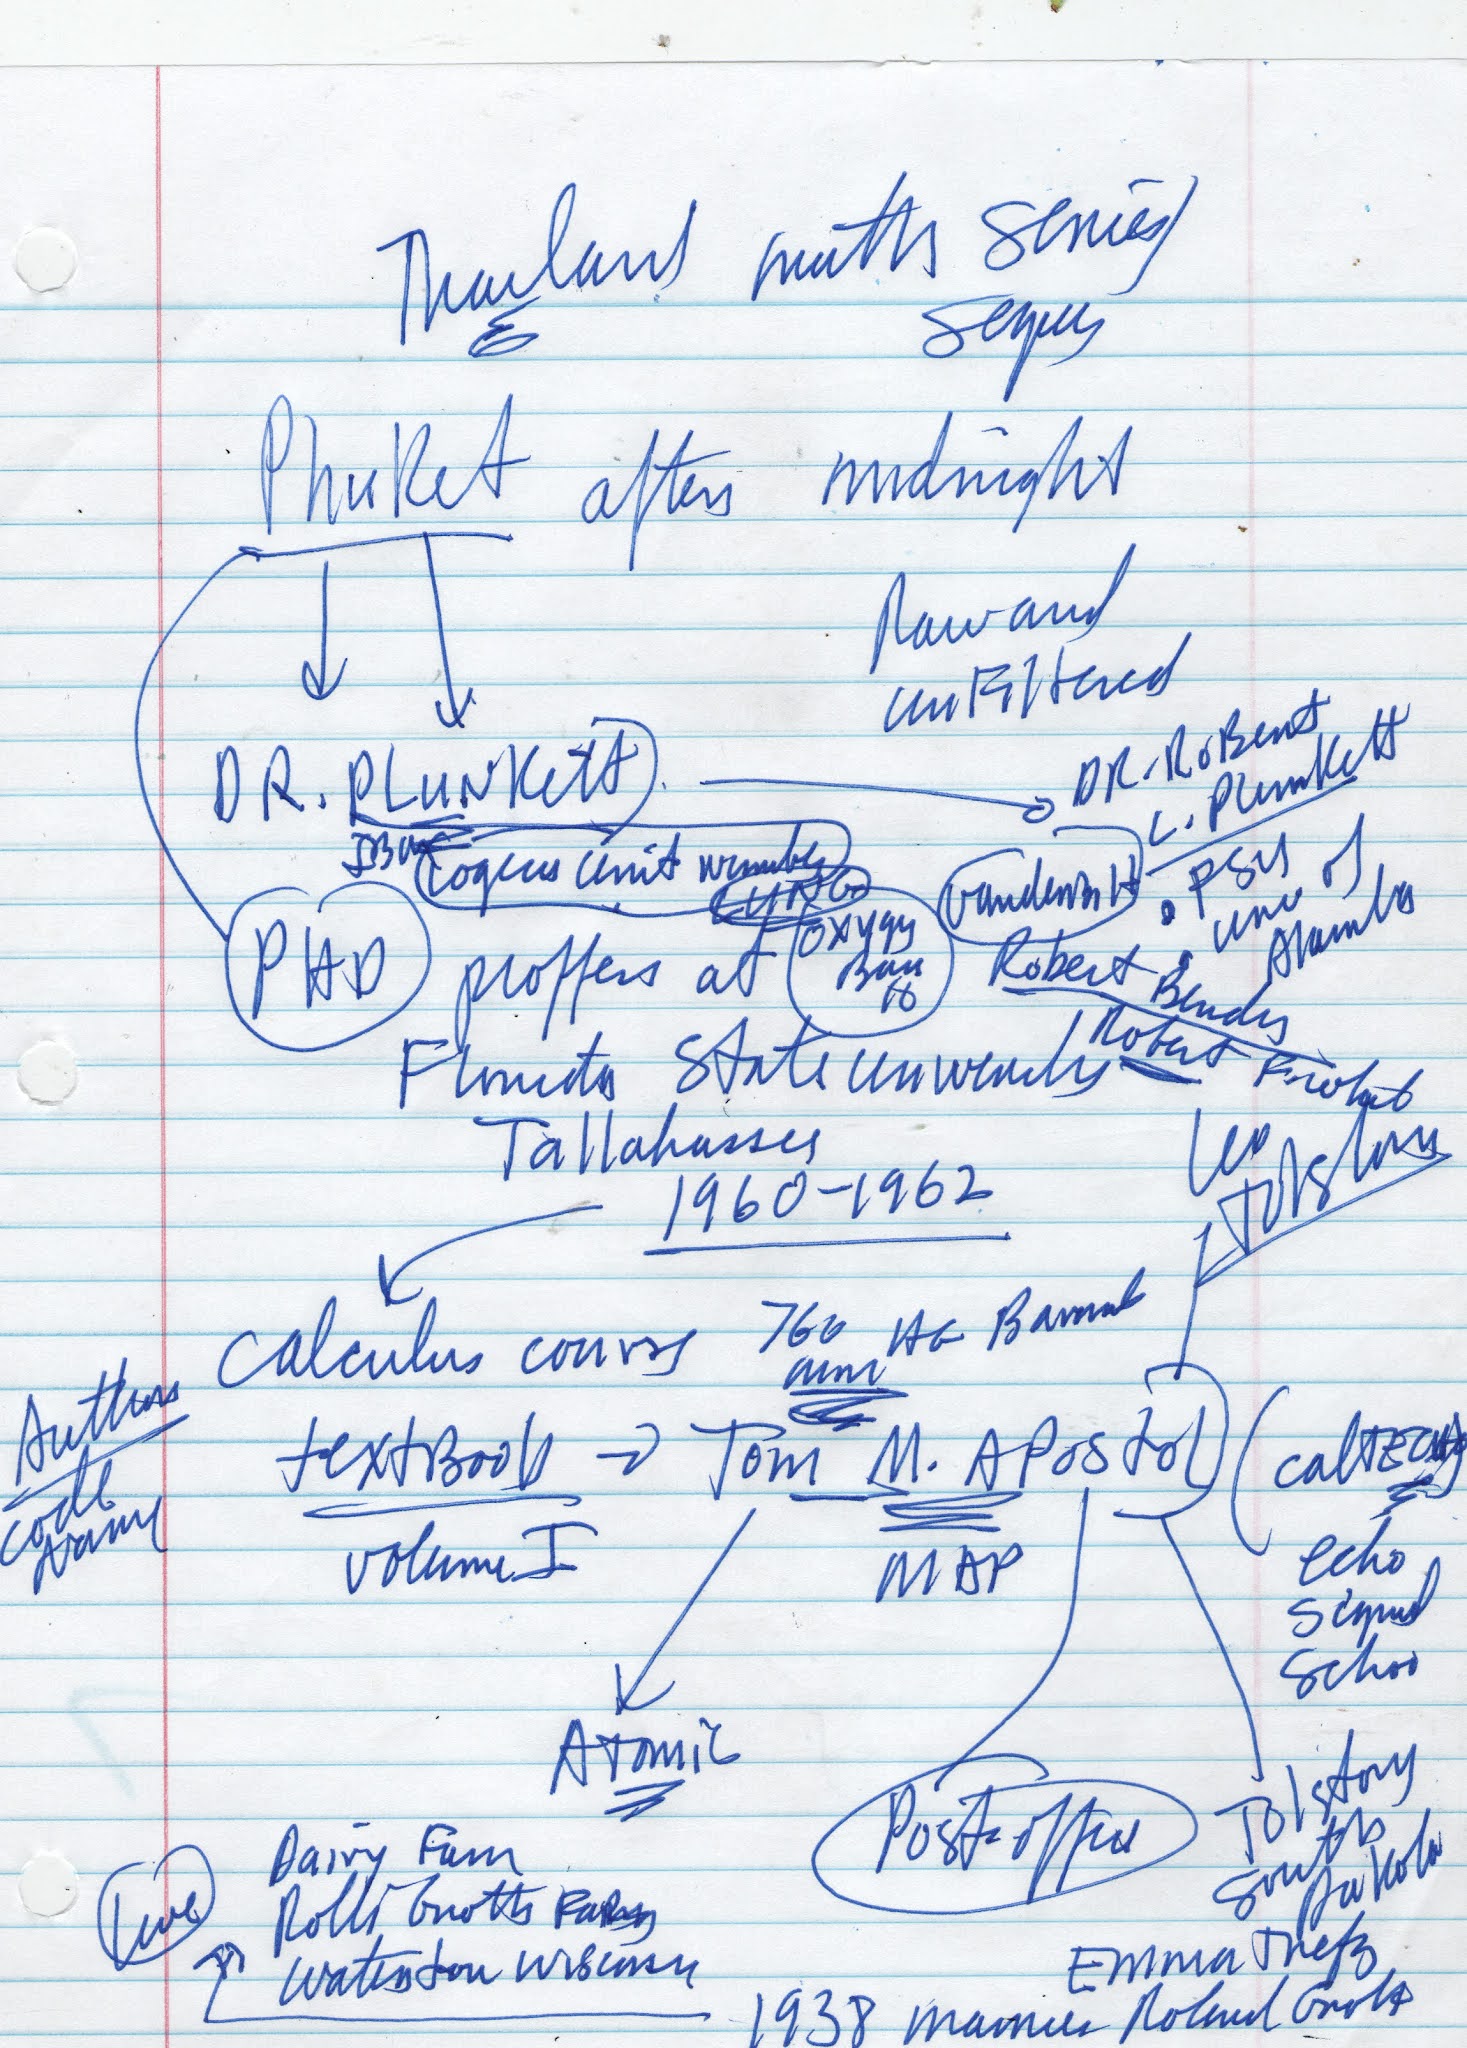 Thailand math series
Segues
Phuket after midnight
Raw and
unfiltered
DR. PLUNKett
DR. RoBert
L. Plunkett
cogeus unit number
LUNG
Vanderbilt
• PSY
• Univ of
Alamba
PHD proffers at
oxygy
Bau
18
Robert Bendis
Florida State university
Robert
Tallahassee
1960-1962
Leo
Tolstoy
calculus course
760
mm
HG Baromet
Author
code
Name
textBook → Tom M. APostol
(calTECH)
volume I
MAP
echo
signal
schoo
Atomic
Post-office
Tolstoy
South
Dakota
Live
Dairy Farm
Rolli Groth Farm
Watertown Wisconsin
Emma
1938 marries Roland Groth